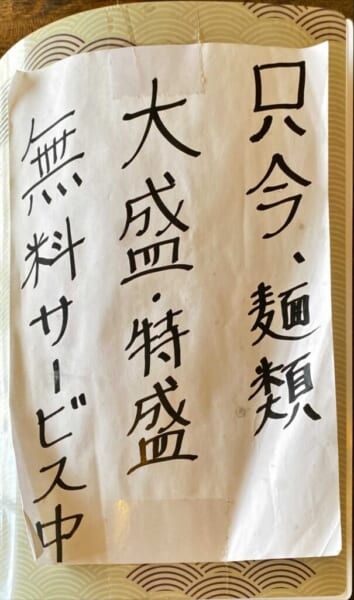 只今、麺類
大盛・特盛
無料サービス中